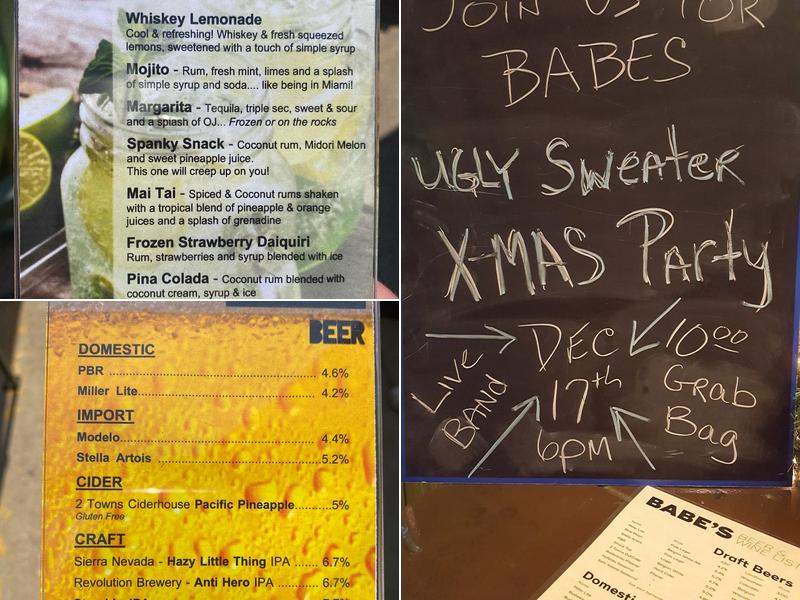 Whiskey Lemonade
Cool & refreshing! Whiskey & fresh squeezed
lemons, sweetened with a touch of simple syrup
Mojito - Rum, fresh mint, limes and a splash
of simple syrup and soda.... like being in Miami!
Margarita - Tequila, triple sec, sweet & sour
and a splash of OJ... Frozen or on the rocks
Spanky Snack - Coconut rum, Midori Melon
and sweet pineapple juice.
This one will creep up on you!
Mai Tai - Spiced & Coconut rums shaken
with a tropical blend of pineapple & orange
juices and a splash of grenadine
Frozen Strawberry Daiquiri
Rum, strawberries and syrup blended with ice
Pina Colada - Coconut rum blended with
coconut cream, syrup & ice
BEER
DOMESTIC
PBR ........ 4.6%
Miller Lite........ 4.2%
IMPORT
Modelo........ 4.4%
Stella Artois ........5.2%
CIDER
2 Towns Ciderhouse Pacific Pineapple........5%
Gluten Free
CRAFT
Sierra Nevada - Hazy Little Thing IPA ....... 6.7%
Revolution Brewery - Anti Hero IPA ....... 6.7%
JOIN US FOR
BABES
UGLY Sweater
X-MAS Party
DEC
17th
6pm
LIVE
BAND
10 00
Grab
Bag
BABE'S BEER & WINE LIST
Draft Beers
Domestic